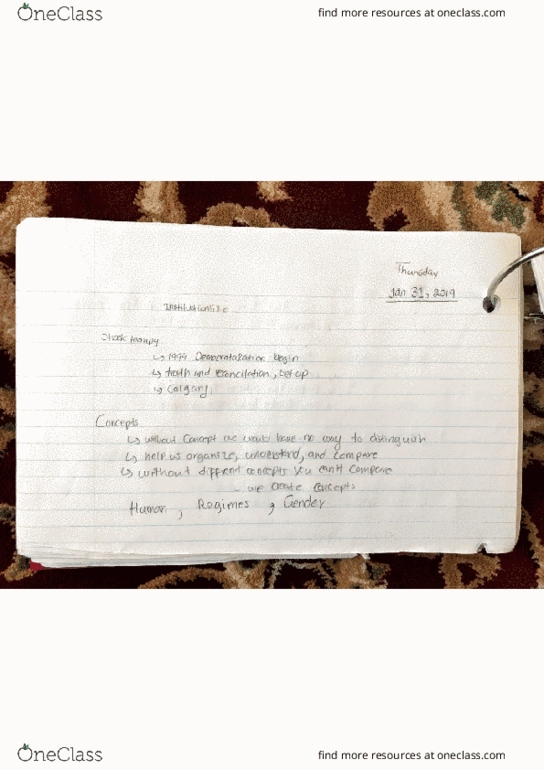 OneClass
find more resources at oneclass.com
Thursday
Jan 31, 2019
Shock therapy
↳ 1994 Democratization begin
↳ truth and reconcilation, set up
↳ Calgary
Concepts
↳ without Concept we would have no way to distinguish
↳ help us organize, understand, and compare
↳ without different concepts you can't compare
- we create concepts
Human, Regimes, Gender
OneClass
find more resources at oneclass.com